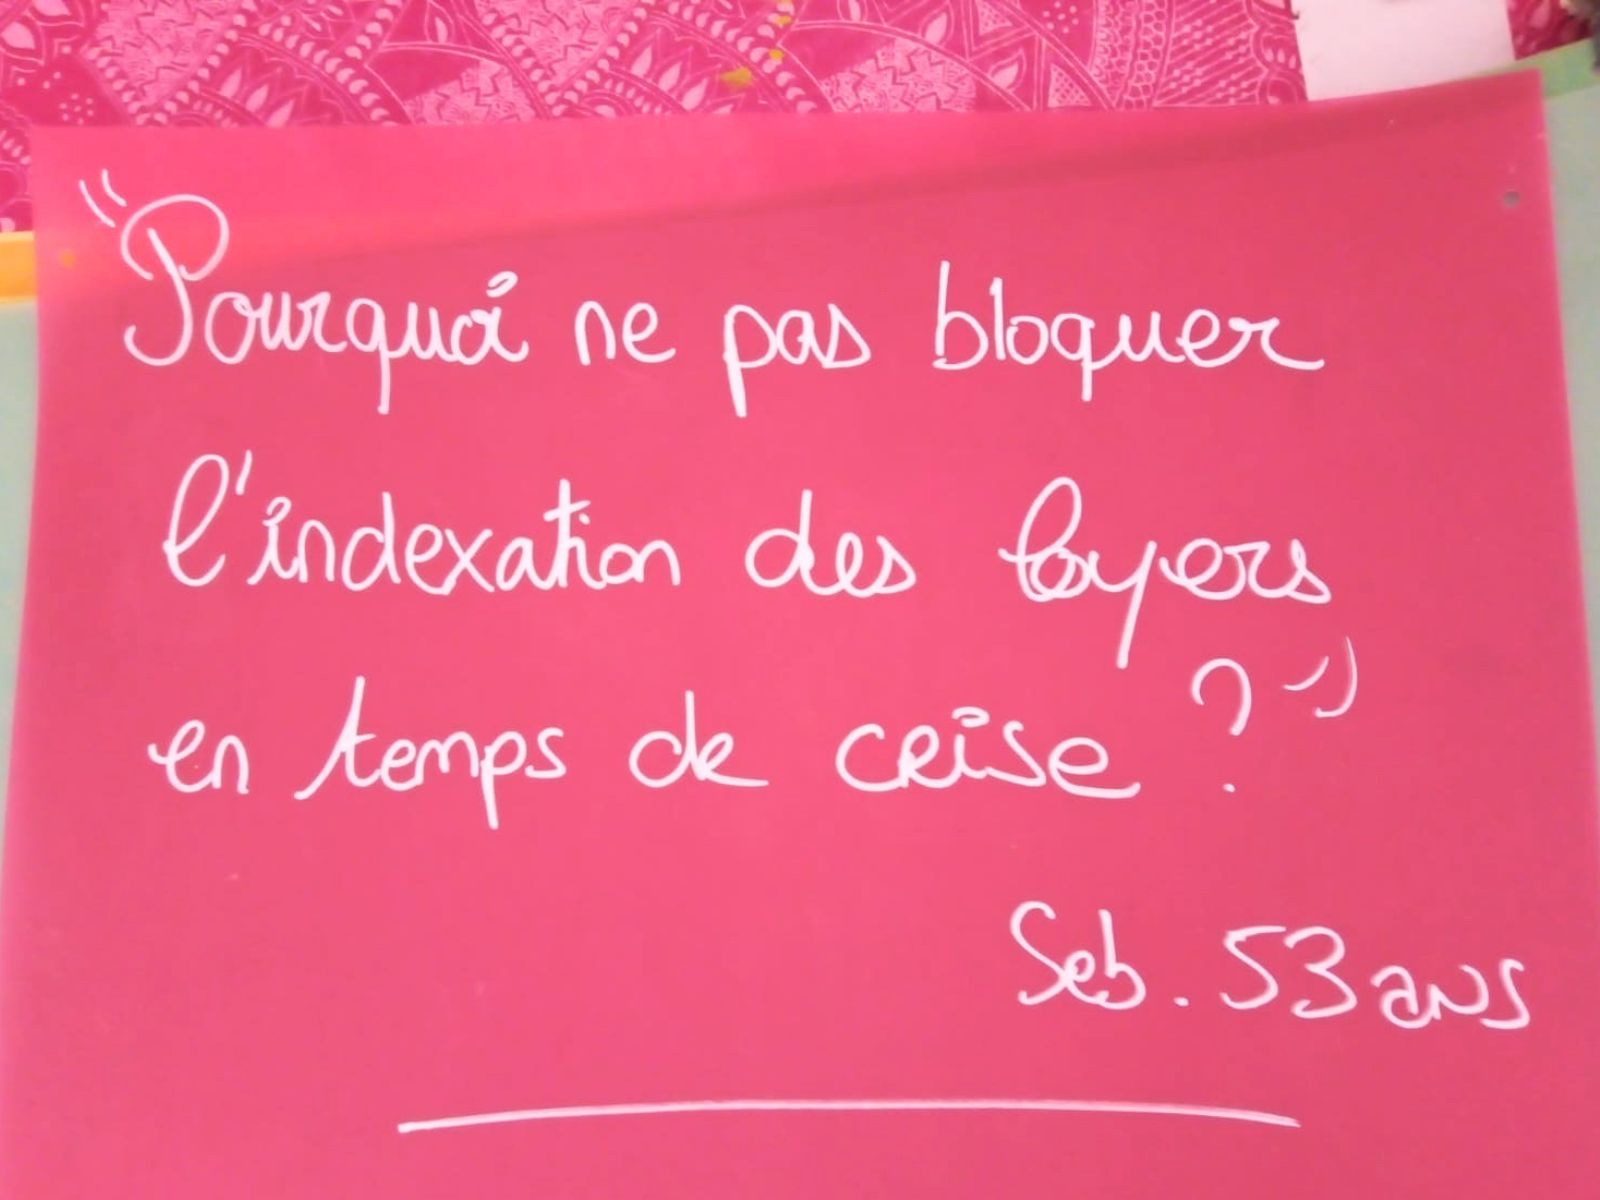 "Pourquoi ne pas bloquer
l'indexation des loyers
en temps de crise ?"
Seb. 53 ans